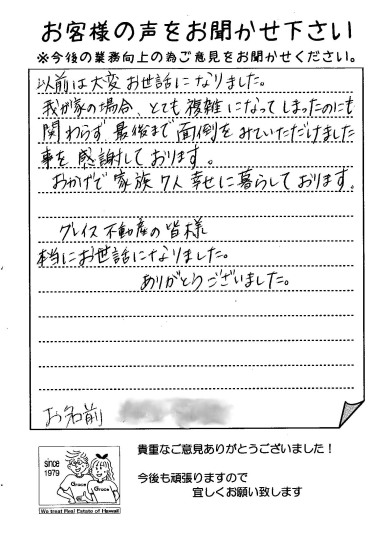 お客様の声をお聞かせ下さい
※今後の業務向上の為ご意見をお聞かせください。
以前は大変お世話になりました。
我が家の場合、とても複雑になってしまったのにも
関わらず最後まで面倒をみていただけました
事を感謝しております。
おかげで家族7人幸せに暮らしております。
グレイス不動産の皆様
本当にお世話になりました。
ありがとうございました。
お名前
貴重なご意見ありがとうございました！
since
1979
Grace
Grace
今後も頑張りますので
宜しくお願い致します
We treat Real Estate of Hawaii